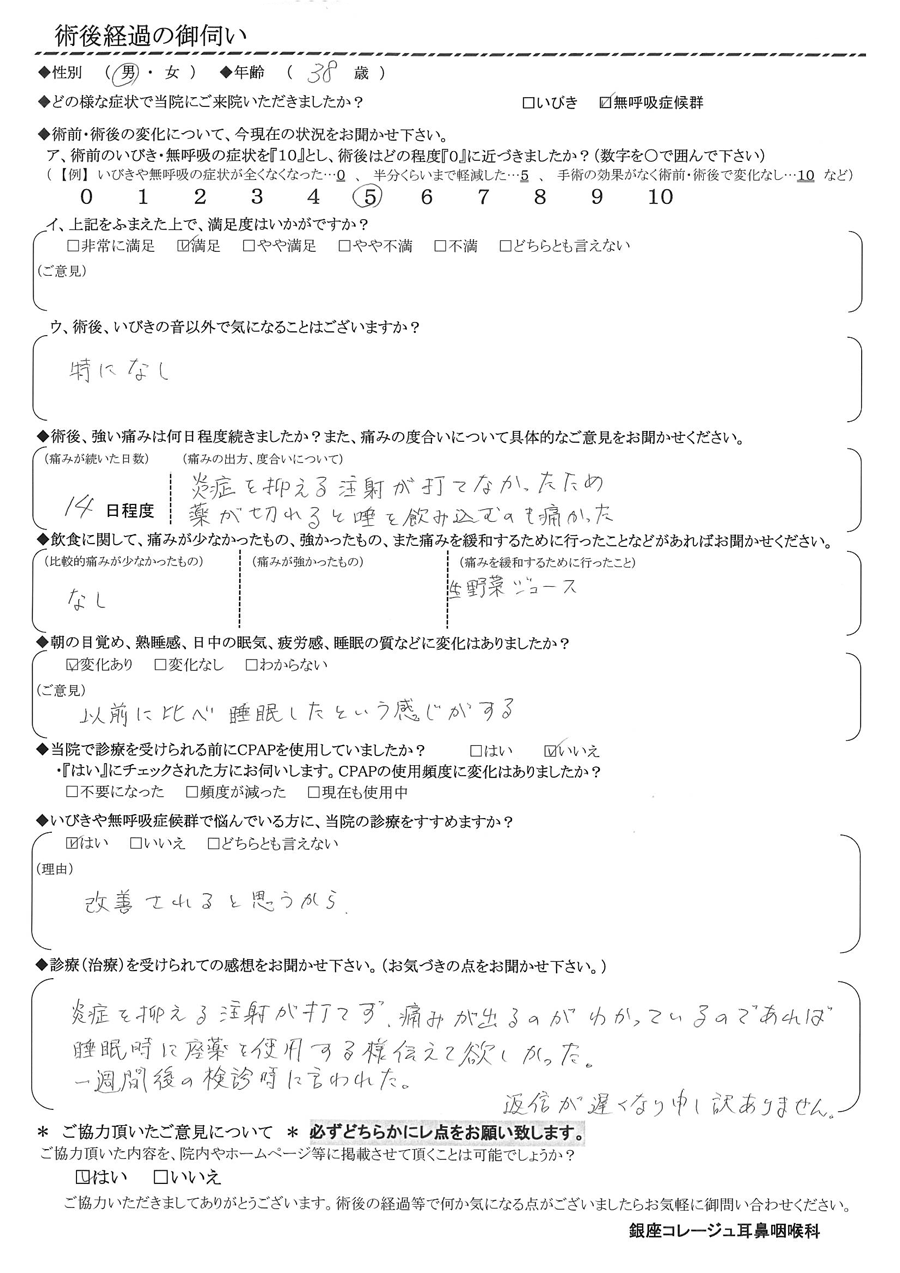 術後経過の御伺い
◆性別 （ 男 ・ 女 ） ◆年齢 （ 38 歳 ）
◆どの様な症状で当院にご来院いただきましたか？ □いびき ☑無呼吸症候群
◆術前・術後の変化について、今現在の状況をお聞かせ下さい。
ア、術前のいびき・無呼吸の症状を『10』とし、術後はどの程度『0』に近づきましたか？（数字を〇で囲んで下さい）
（ 【例】 いびきや無呼吸の症状が全くなくなった…0 、 半分くらいまで軽減した…5 、 手術の効果がなく術前・術後で変化なし…10 など）
0 1 2 3 4 5 6 7 8 9 10
イ、上記をふまえた上で、満足度はいかがですか？
□非常に満足 ☑満足 □やや満足 □やや不満 □不満 □どちらとも言えない
（ご意見）
ウ、術後、いびきの音以外で気になることはございますか？
特になし
◆術後、強い痛みは何日程度続きましたか？また、痛みの度合いについて具体的なご意見をお聞かせください。
（痛みが続いた日数） （痛みの出方、度合いについて）
炎症を抑える注射が打てなかったため
14 日程度 薬が切れると唾を飲み込むのも痛かった
◆飲食に関して、痛みが少なかったもの、強かったもの、また痛みを緩和するために行ったことなどがあればお聞かせください。
（比較的痛みが少なかったもの） （痛みが強かったもの） （痛みを緩和するために行ったこと）
なし 生野菜ジュース
◆朝の目覚め、熟睡感、日中の眠気、疲労感、睡眠の質などに変化はありましたか？
☑変化あり □変化なし □わからない
（ご意見）
以前に比べ睡眠したという感じがする
◆当院で診療を受けられる前にCPAPを使用していましたか？ □はい ☑いいえ
・『はい』にチェックされた方にお伺いします。CPAPの使用頻度に変化はありましたか？
□不要になった □頻度が減った □現在も使用中
◆いびきや無呼吸症候群で悩んでいる方に、当院の診療をすすめますか？
☑はい □いいえ □どちらとも言えない
（理由）
改善されると思うから.
◆診療（治療）を受けられての感想をお聞かせ下さい。（お気づきの点をお聞かせ下さい。）
炎症を抑える注射が打てず、痛みが出るのがわかっているのであれば
睡眠時に座薬を使用する様伝えて欲しかった。
一週間後の検診時に言われた。
返信が遅くなり申し訳ありません。
＊ ご協力頂いたご意見について ＊ 必ずどちらかにレ点をお願い致します。
ご協力頂いた内容を、院内やホームページ等に掲載させて頂くことは可能でしょうか？
☑はい □いいえ
ご協力いただきましてありがとうございます。術後の経過等で何か気になる点がございましたらお気軽に御問い合わせください。
銀座コレージュ耳鼻咽喉科